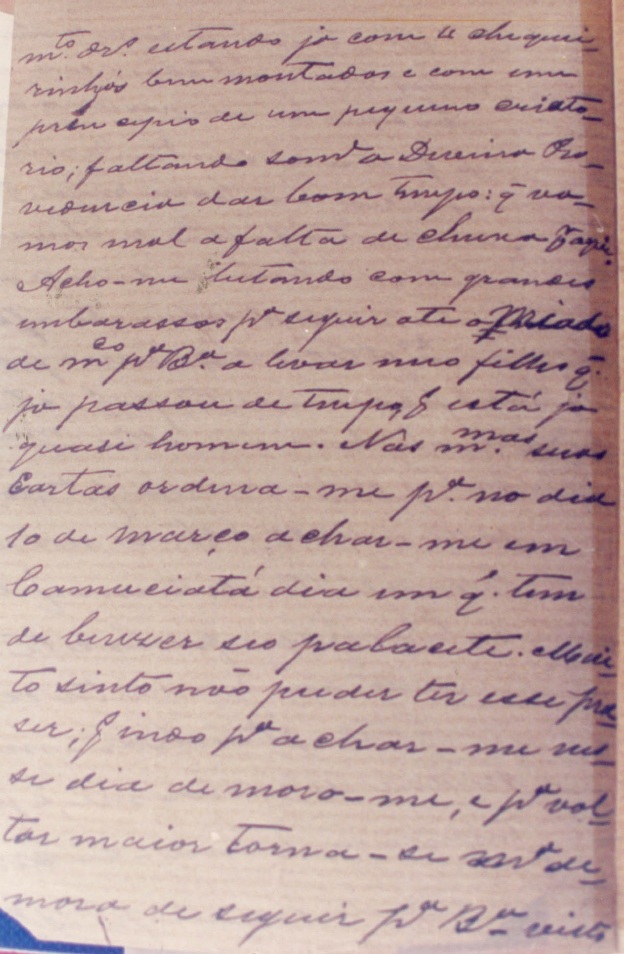 m.to estando já com 4 chiquei-
rinhós bem montados e com um
principio de um pequeno criato-
rio; faltando som.e a Devina Pro-
videncia dar bom tempo: q̃ va-
mos mal a falta de chuva
Acho-me lutando com grandes
embarassos p.a seguir ate o
de m.ço p.a B.a a levar meo filho q̃.
já passou de tempo, e está já
quasi homem. Nas m.mas suas
Cartas ordena-me p.a no dia
10 de março achar-me em
Camuciatá dia em q̃. tem
de benzer seo palacete. Mui-
to sinto não puder ter esse pra-
ser; q̃ indo p.a achar-me nes-
se dia demoro-me, e p.a vol-
tar maior torna-se m.a de-
mora de seguir p.a B.a visto